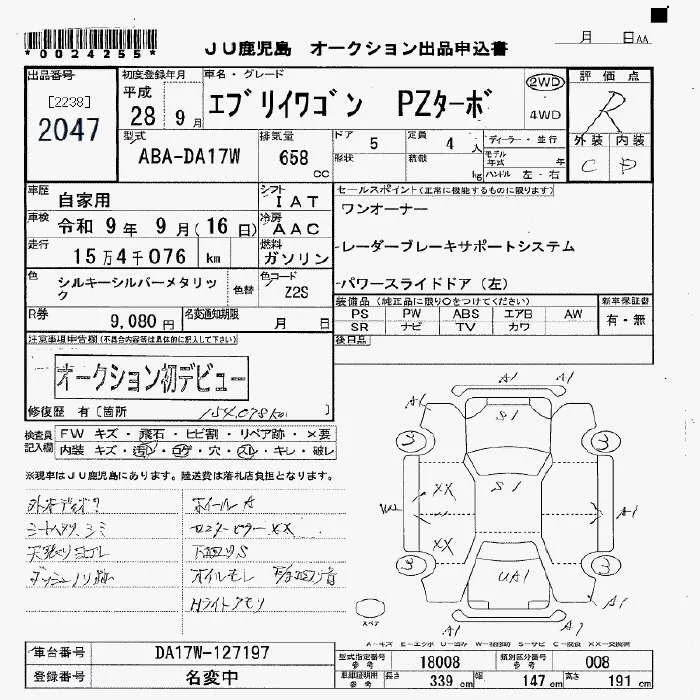 *0024255*
JU鹿児島 オークション出品申込書
月 日AA
出品番号
[2238]
2047
初度登録年月
平成
28 9月
車名・グレード
エブリイワゴン PZターボ
2WD
4WD
評価点
R
外装 内装
C D
型式
ABA-DA17W
排気量
658
CC
ドア
5
定員
4人
ディーラー・並行
形状
積載
kg
モデル年式
年
ハンドル 左・右
車歴
自家用
シフト
IAT
車検
令和 9年 9月(16日)
冷房
AAC
走行
15万4千076 km
燃料
ガソリン
色
シルキーシルバーメタリック
色替
色コード
Z2S
R券
9,080円
名変通知期限
月 日
セールスポイント(正常に機能するものに限ります)
ワンオーナー
レーダーブレーキサポートシステム
パワースライドドア(左)
装備品(純正品に限り○をつけてください)
PS PW ABS エアB AW
SR ナビ TV カワ
新車保証書
有・無
後日品
注意事項申告欄(不具合内容等は具体的に記入して下さい)
オークション初デビュー
修復歴 有〔箇所 〕
154,078km
検査員記入欄
FW キズ・飛石・ヒビ割・リペア跡・×要
内装 キズ・汚レ・コゲ・穴・スレ・キレ・破レ
※現車はJU鹿児島にあります。陸送費は落札店負担となります。
ホイールA
シートスリ、シミ
天張りヨゴレ
下廻りS
ダッシュノリ跡
オイルモレ
Hライトクモリ
A1 A1
A1 S1 A1
3 3
XX S1 A1
XX
3 UA1 3
A1 A1
A1 A1
スペア
A-キズ E-エクボ U-凹み W-補修跡 S-サビ C-腐食 XX-交換済
車台番号
DA17W-127197
登録番号
名変中
型式指定番号
参考
18008
類別区分番号
参考
008
車庫証明用
参考
長さ
339 cm
幅
147 cm
高さ
191 cm